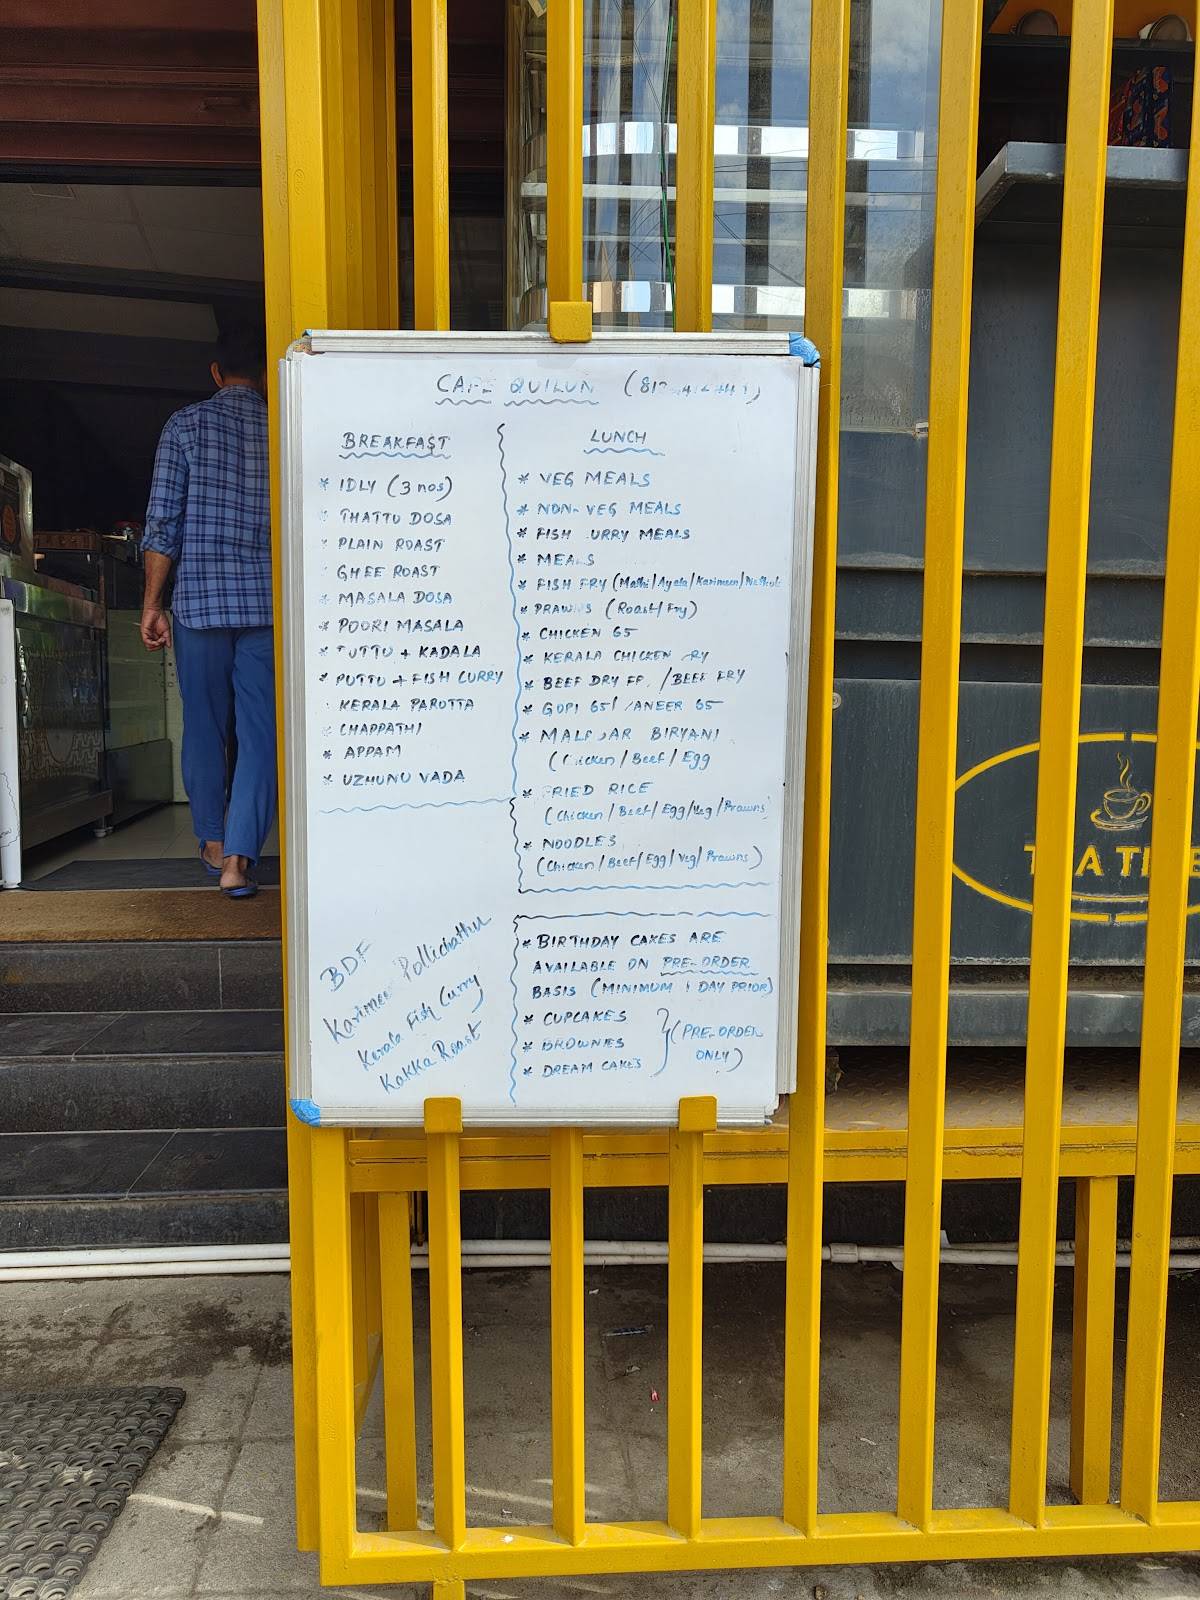 CAFE QUILON
BREAKFAST
* IDLY (3 nos)
* THATTU DOSA
* PLAIN ROAST
* GHEE ROAST
* MASALA DOSA
* POORI MASALA
* PUTTU + KADALA
* PUTTU + FISH CURRY
* KERALA PAROTTA
* CHAPPATHI
* APPAM
* UZHUNU VADA
BDF
Karimeen Pollichathu
Kerala Fish Curry
Kakka Roast
LUNCH
* VEG MEALS
* NON-VEG MEALS
* FISH CURRY MEALS
* MEALS
* FISH FRY (Mathi/Ayala/Karimeen/
* PRAWNS (Roast/Fry)
* CHICKEN 65
* KERALA CHICKEN FRY
* BEEF DRY FRY/BEEF FRY
* GOPI 65/PANEER 65
* MALABAR BIRYANI
(Chicken/Beef/Egg
* FRIED RICE
(Chicken/Beef/Egg/Veg/Prawns)
* NOODLES
(Chicken/Beef/Egg/Veg/Prawns)
* BIRTHDAY CAKES ARE
AVAILABLE ON PRE-ORDER
BASIS (MINIMUM 1 DAY PRIOR)
* CUPCAKES
* BROWNIES
* DREAM CAKES
(PRE-ORDER
ONLY)